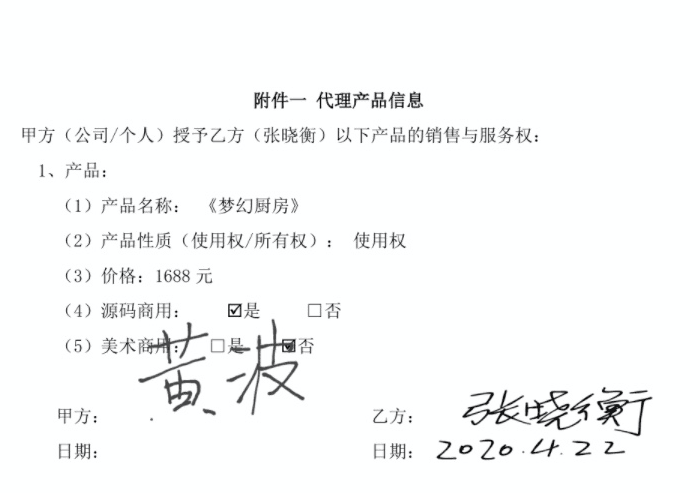 附件一 代理产品信息
甲方（公司/个人）授予乙方（张晓衡）以下产品的销售与服务权：
1、产品：
（1）产品名称： 《梦幻厨房》
（2）产品性质（使用权/所有权）： 使用权
（3）价格：1688 元
（4）源码商用： ☑是 □否
（5）美术商用： □是 ☑否
黄波
甲方： 乙方： 张晓衡
日期： 日期： 2020.4.22